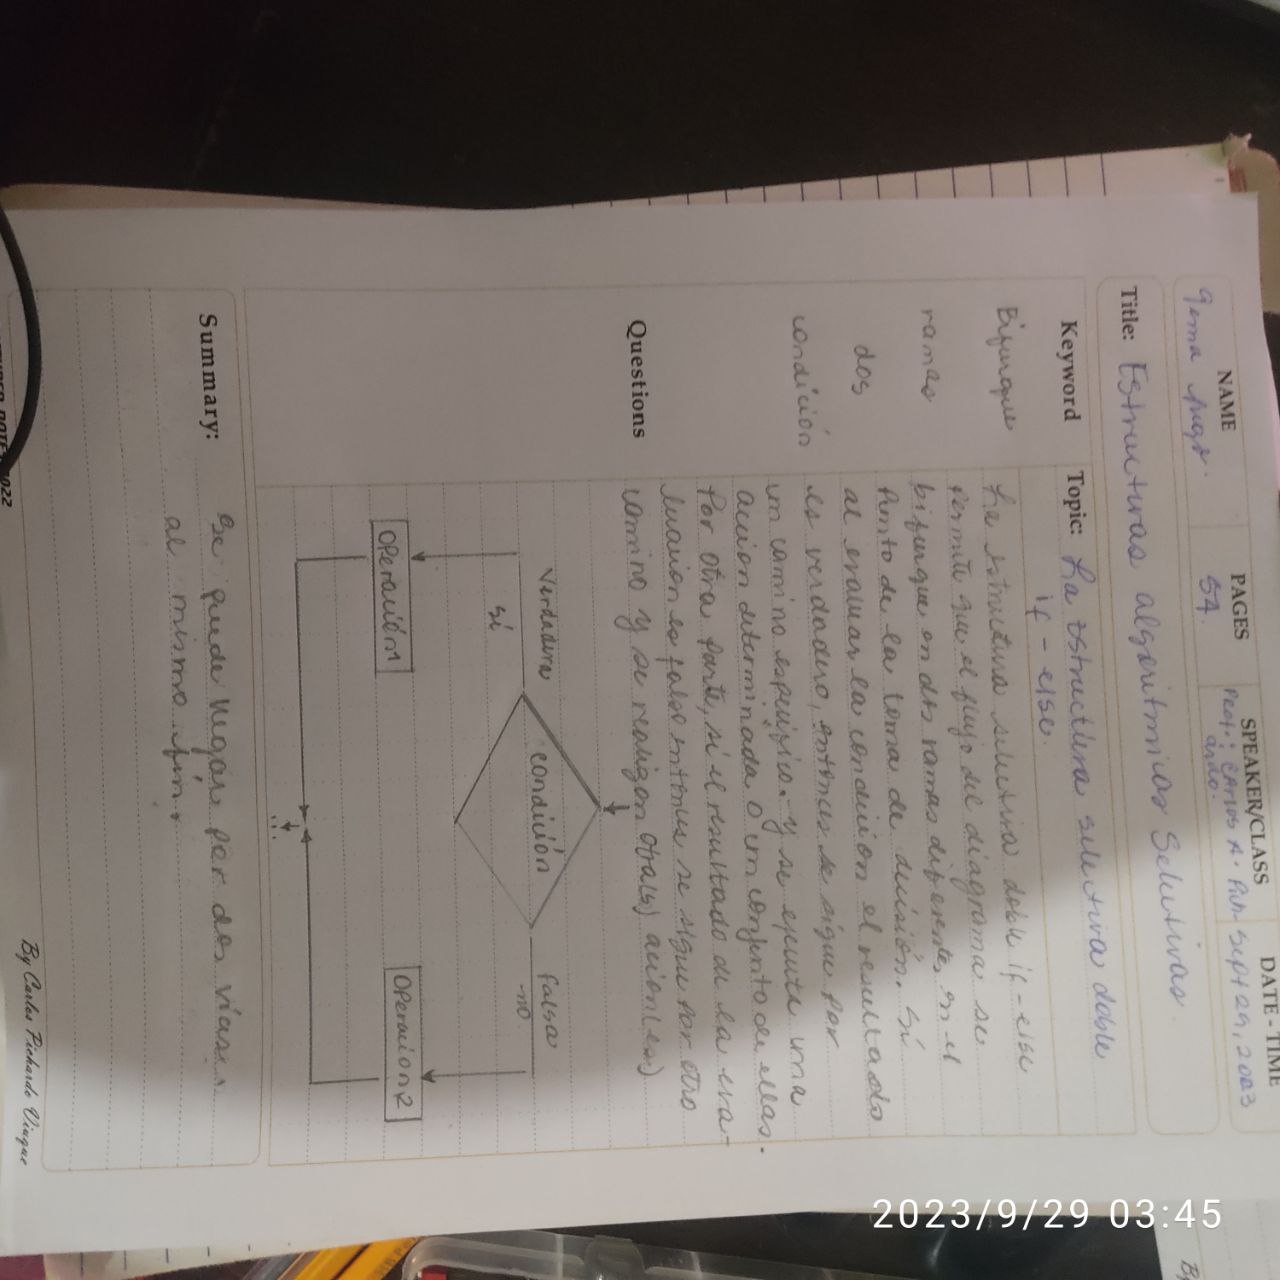 NAME
PAGES
SPEAKER/CLASS
DATE - TIME
57.
Prof: Carlos A. Pich-
ardo.
Sept 29, 2023
Title: Estructuras algoritmicas Selectivas.
Keyword
Topic: La estructura selectiva doble
if - else.
Bifurque
ramas
dos
condición
La estructura selectiva doble if-else
Permite que el flujo del diagrama se
bifurque en dos ramas diferentes en el
Punto de la toma de decisión. Si
al evaluar la condicion el resultado
es verdadero, entonces se sigue por
un camino especifico. y se ejecuta una
accion determinada o un conjunto de ellas.
Por otra parte, si el resultado de la eva-
luacion es falso entonces se sigue por otro
camino y se realizan otra(s) accion(es)
Questions
Verdadero
condición
Falso
Sí
-no
Operación1
Operacion2
...
Summary:
Se puede llegar por dos vias
al mismo fin.
2022
By Carlos Pichardo Viuque
2023/9/29 03:45